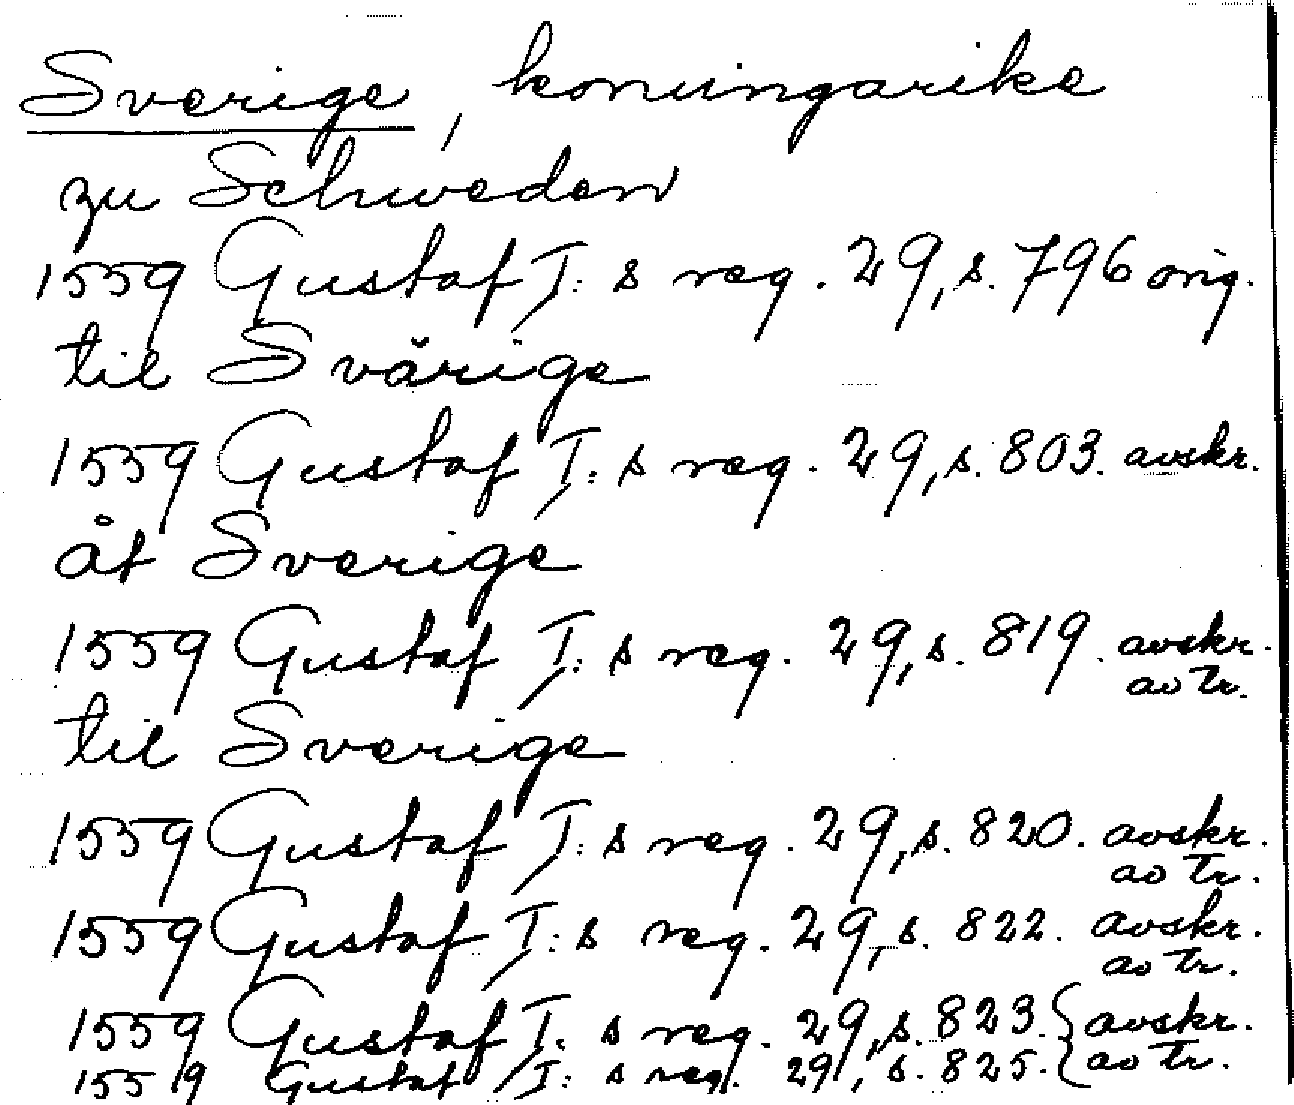 Sverige, konungarike
zu Schweden
1559 Gustaf I:s reg. 29, s. 796 orig.
til Svärige
1559 Gustaf I:s reg. 29, s. 803. avskr.
åt Sverige
1559 Gustaf I:s reg. 29, s. 819. avskr.
av tr.
til Sverige
1559 Gustaf I:s reg. 29, s. 820. avskr.
av tr.
1559 Gustaf I:s reg. 29, s. 822. avskr.
av tr.
1559 Gustaf I:s reg. 29, s. 823. { avskr.
1559 Gustaf I:s reg. 29, s. 825. { av tr.